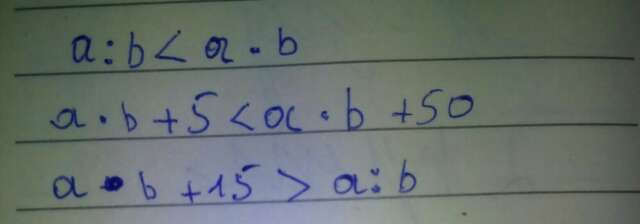 a:b < a · b
a · b + 5 < a · b + 50
a · b + 15 > a:b